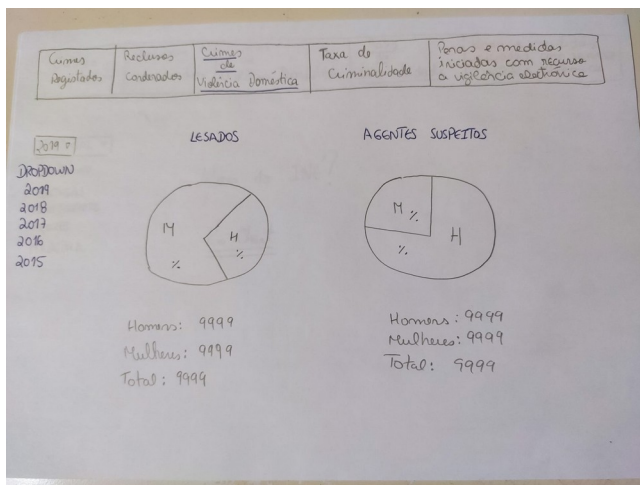 Crimes
Registados
Reclusos
Condenados
Crimes
de
Violência Doméstica
Taxa de
Criminalidade
Penas e medidas
iniciadas com recurso
a vigilância electrónica
2019
DROPDOWN
2019
2018
2017
2016
2015
LESADOS
M
%
H
%
Homens: 9999
Mulheres: 9999
Total: 9999
AGENTES SUSPEITOS
M %
%
H
Homens: 9999
Mulheres: 9999
Total: 9999